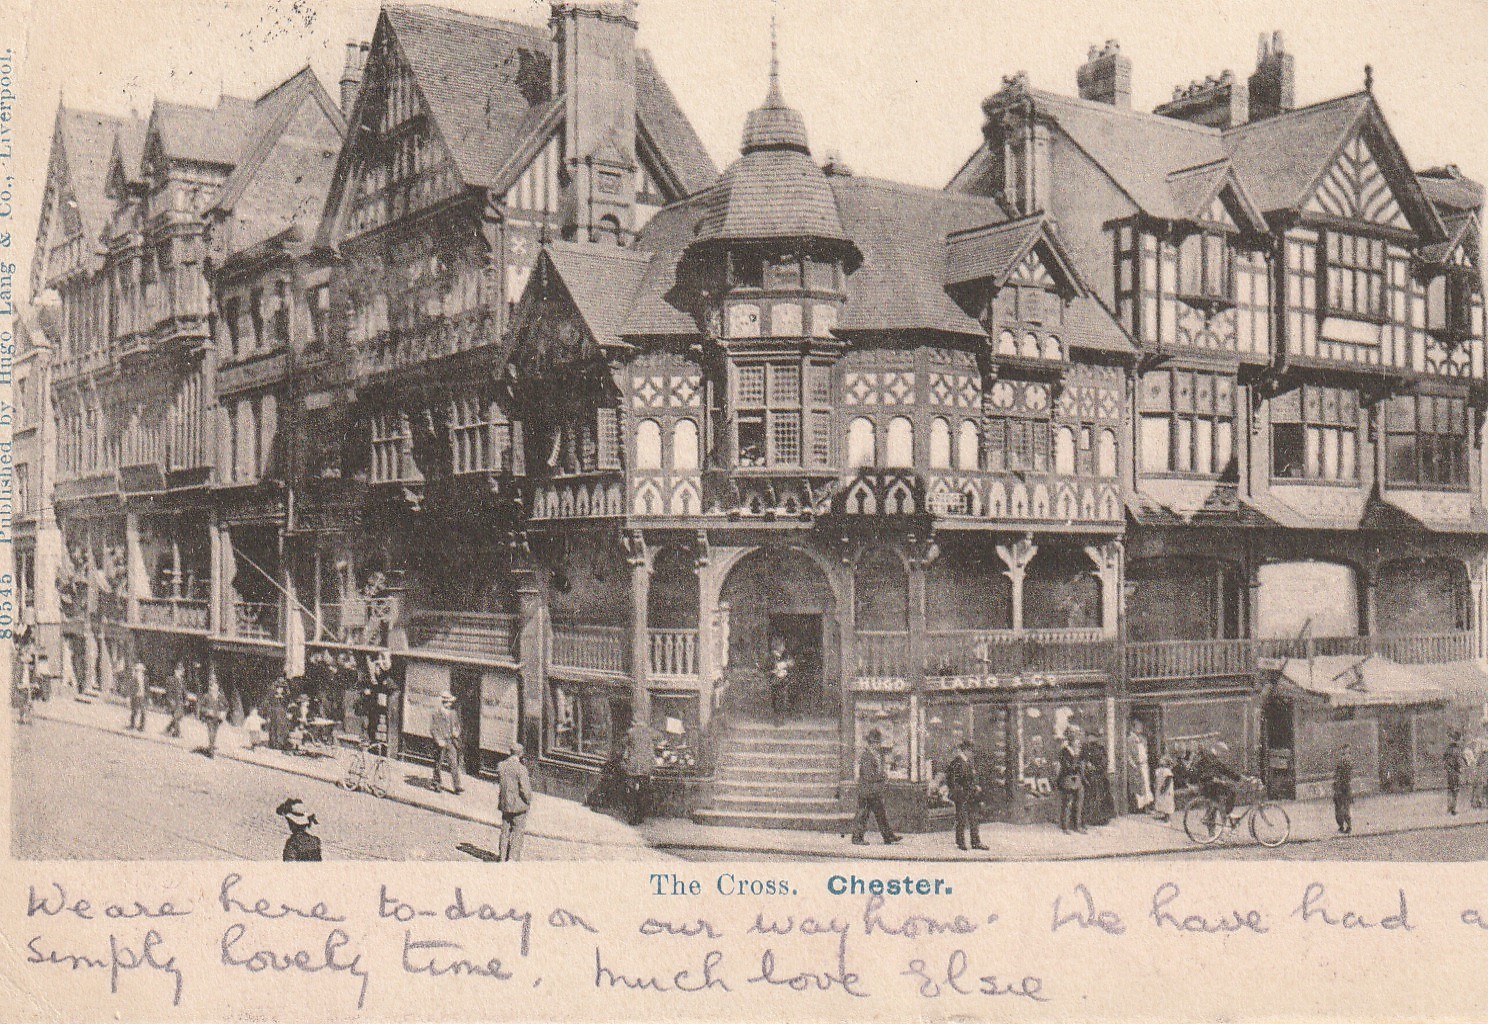 80545 Published by Hugo Lang & Co., Liverpool.
HUGO LANG & CO
The Cross. Chester.
We are here to-day on our way home. We have had a
simply lovely time. Much love Elsie.